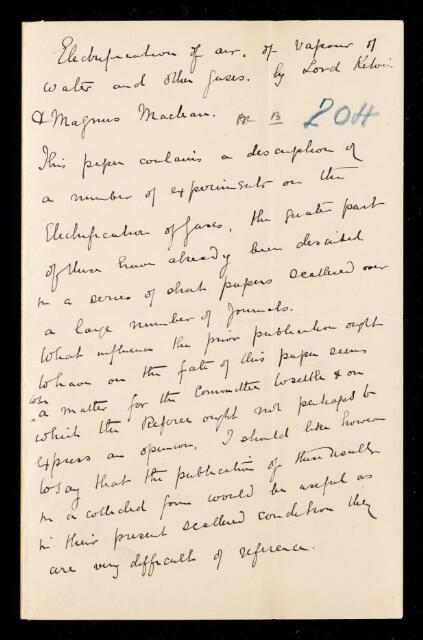 Electrification of air, of vapour of
water and other gases. by Lord Kelvin
& Magnus Maclean. B 204
This paper contains a description of
a number of experiments on the
Electrification of gases, the greater part
of these have already been described
in a series of short papers scattered over
a large number of Journals.
What influence the prior publication ought
to have on the fate of this paper seems
to be
a matter for the Committee to settle & on
which the Referee ought not perhaps to
express an opinion, I should like however
to say that the publication of these results
in a collected form would be useful as
in their present scattered condition they
are very difficult of reference.